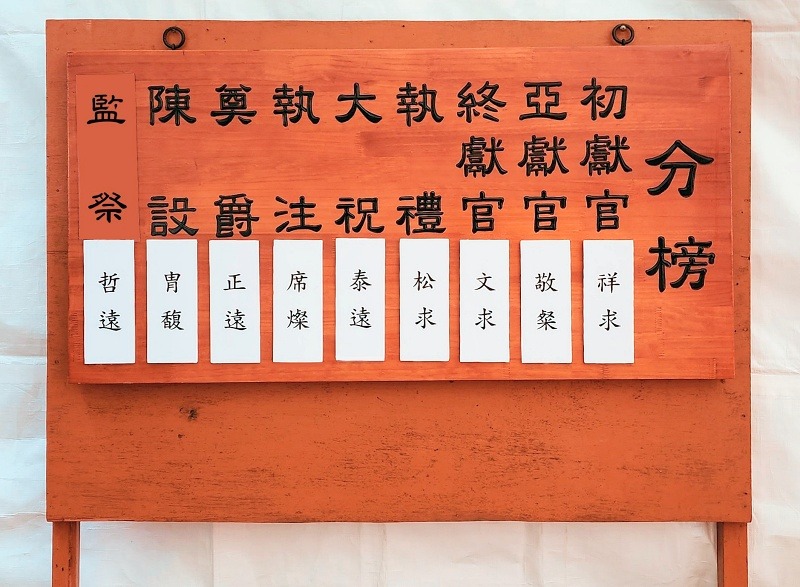 分榜
初獻官 祥求
亞獻官 敬粲
終獻官 文求
執禮 松求
大祝 泰遠
執注 席燦
奠爵 正遠
陳設 胄馥
監祭 哲遠